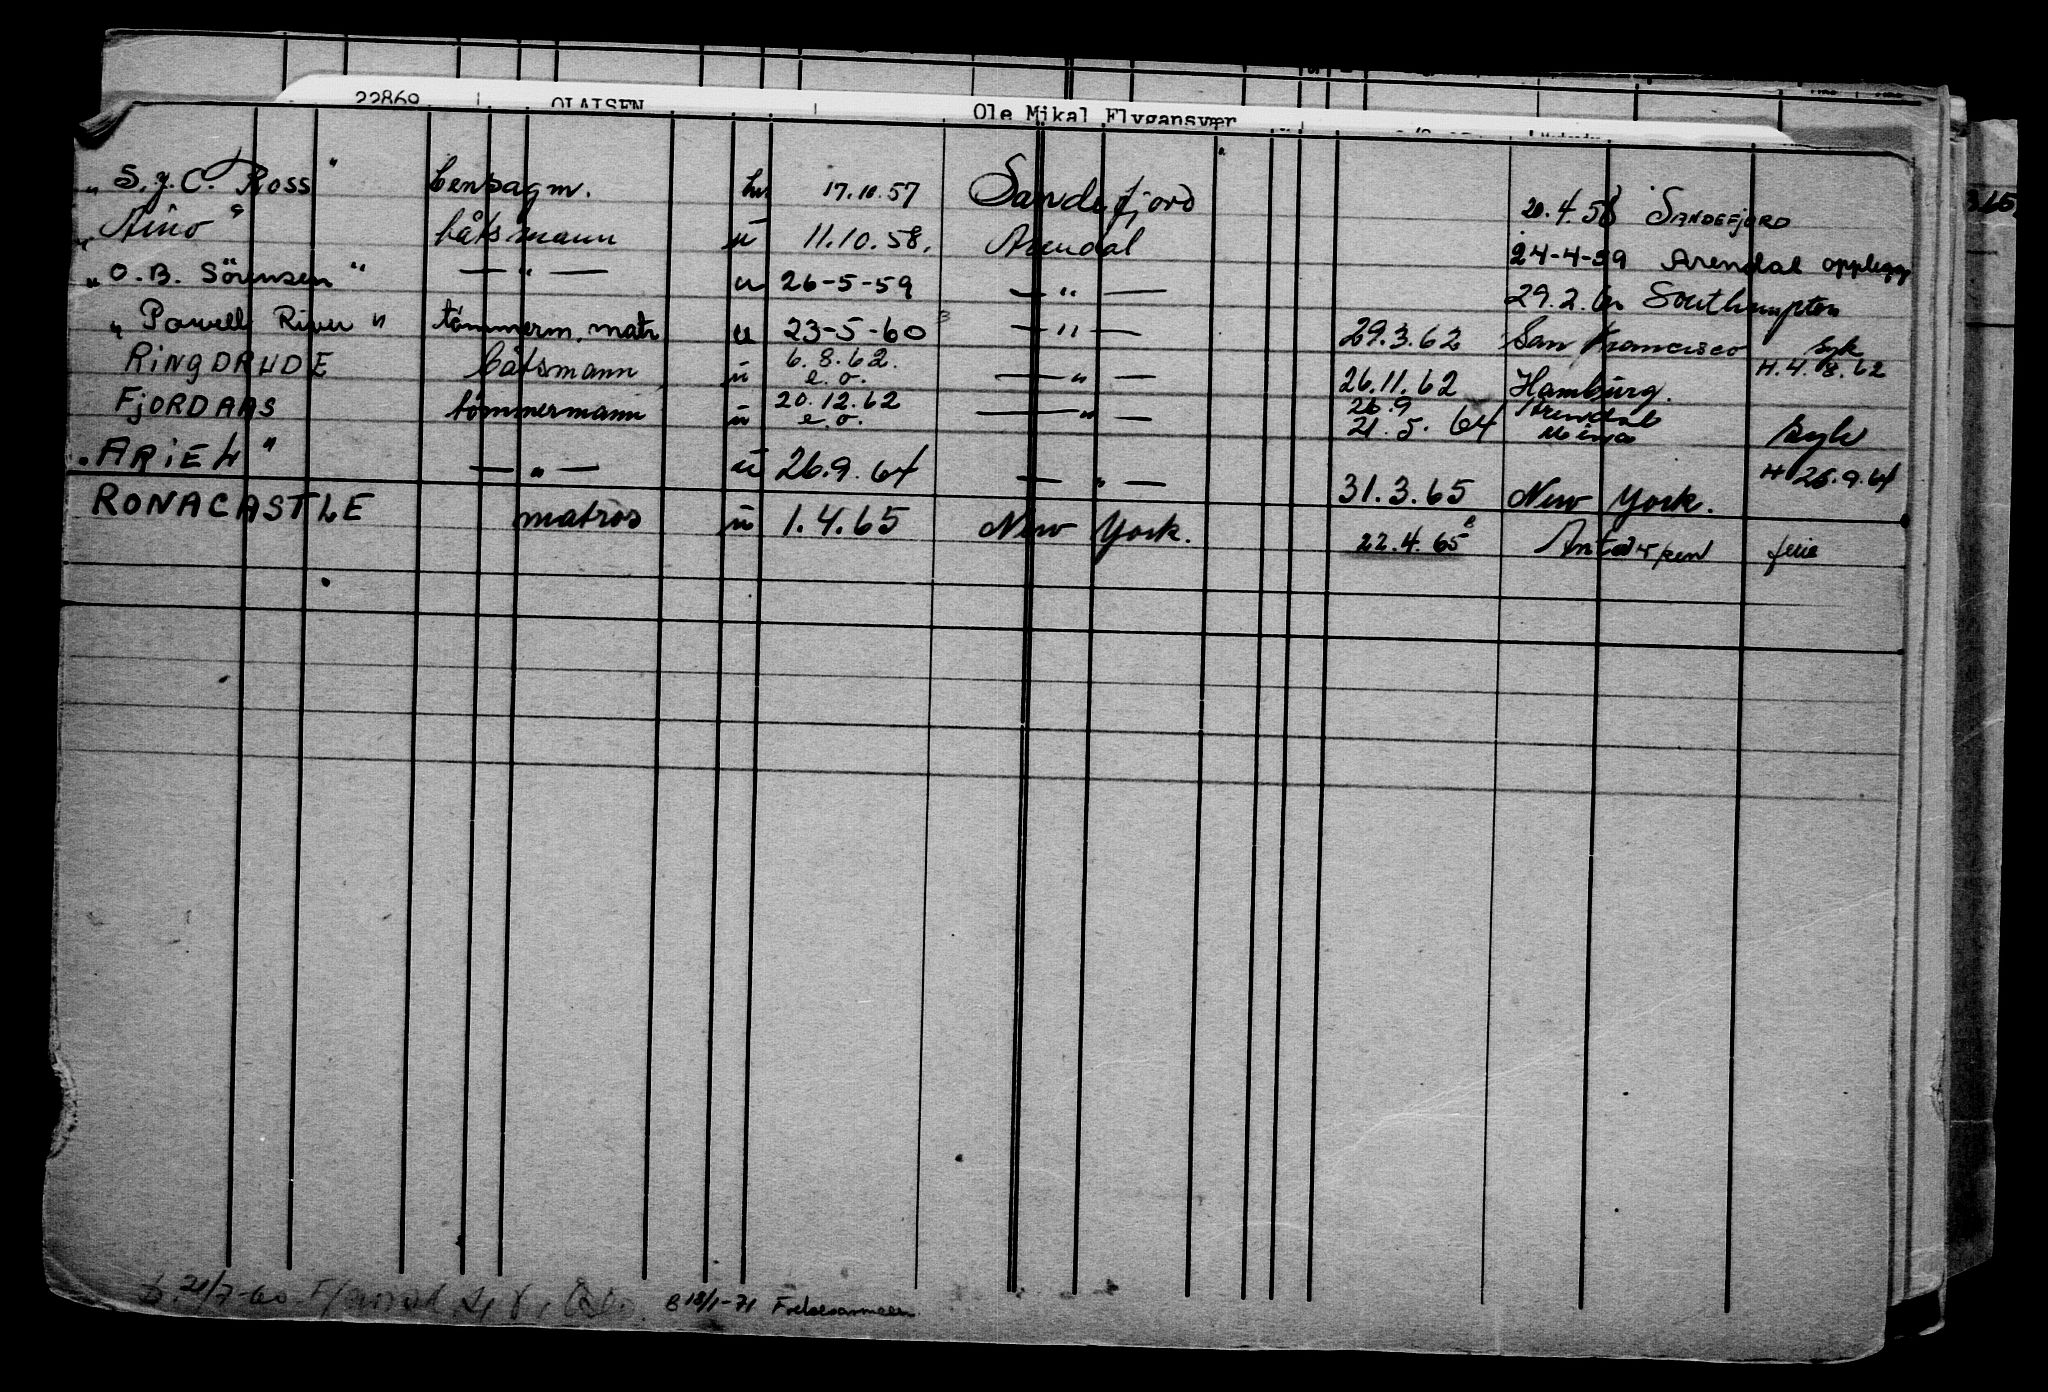 22869 OLAISEN Ole Mikal Flygansvær
"S.y.C. Ross" 17.10.57 Sandefjord 20.4.58 SANDEFJORD
"Aino" båtsmann u 11.10.58. Arendal 24-4-59 Arendal opplegg
"O.B. Sörensen" — " — u 26-5-59 — " — 29.2.60 Southampton
"Powell River" tömmerm. matr u 23-5-60 — " — 29.3.62 San Francisco Syk
RINGDRUDE båtsmann u 6.8.62. e.o. — " — 26.11.62 Hamburg. H. 4.8.62
FJORDAAS tömmermann u 20.12.62 e.o. — " — 26.9 21.5.64 Arendal Syk
"ARIEL" — " — u 26.9.64 — " — 31.3.65 New York. H 26.9.64
RONACASTLE matros u 1.4.65 New York. 22.4.65 Antwerpen ferie
B 18/1-71 Frelsesarmeen